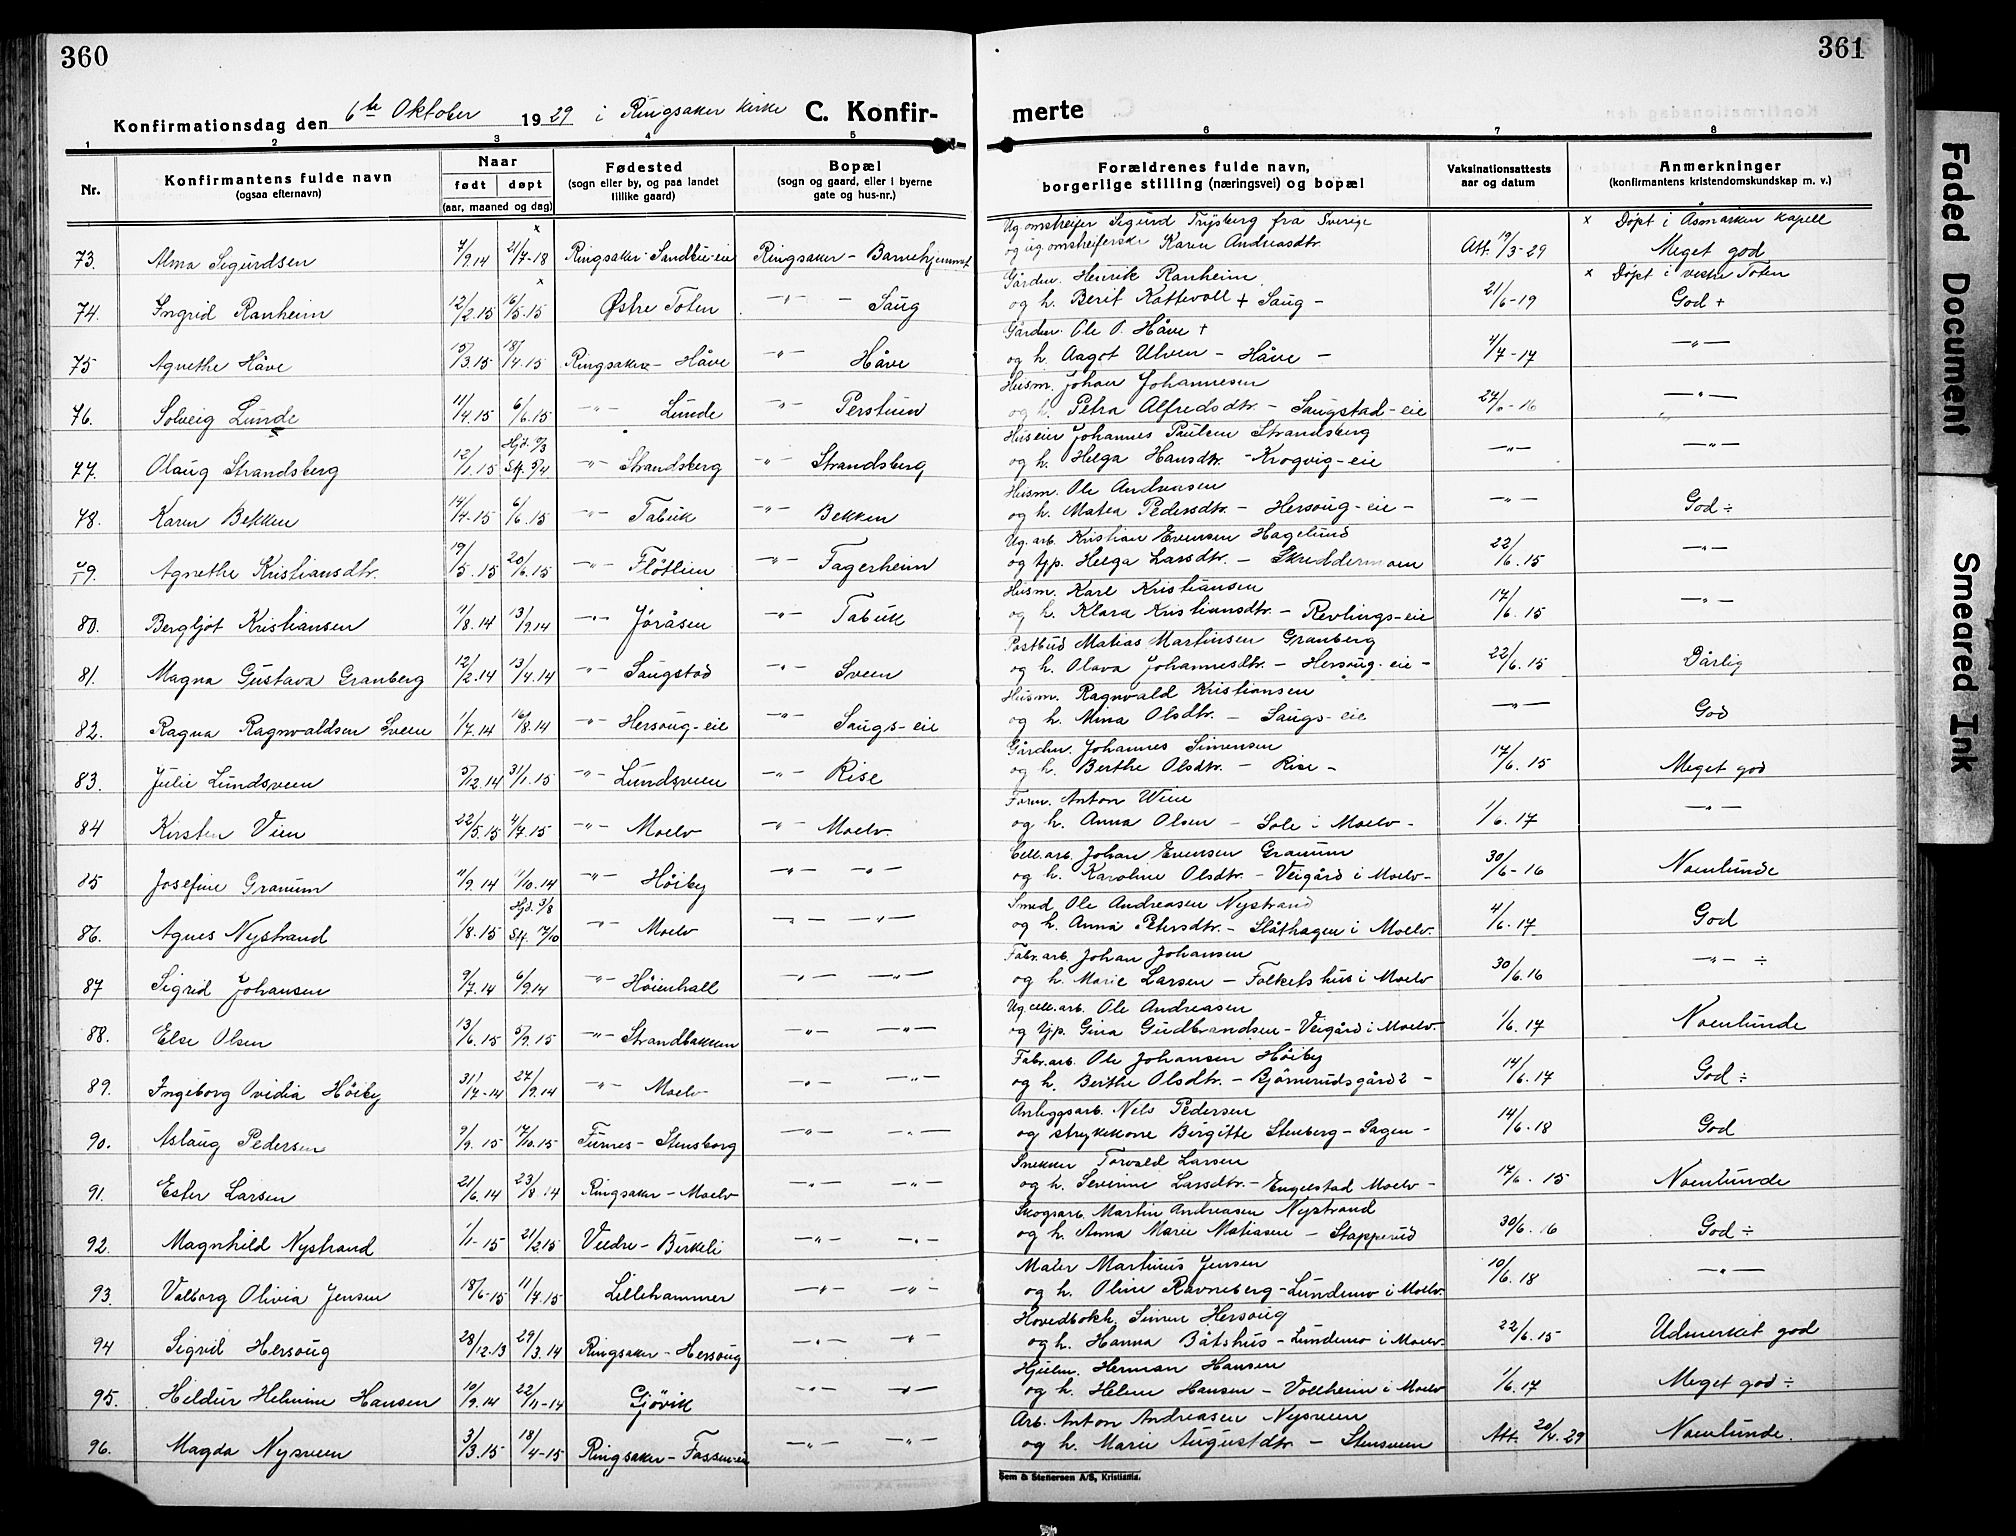 360
361
Konfirmationsdag den 6te Oktober 1929 i Ringsaker kirke C. Konfir-
merte
1 2 3 4 5 6 7 8
Nr. Konfirmantens fulde navn (ogsaa efternavn) Naar født døpt (aar, maaned og dag) Fødested (sogn eller by, og paa landet tillike gaard) Bopæl (sogn og gaard, eller i byerne gate og hus-nr.) Forældrenes fulde navn, borgerlige stilling (næringsvei) og bopæl Vaksinationsattests aar og datum Anmerkninger (konfirmantens kristendomskundskap m. v.)
Ug. omstreifer Sigurd Trysberg fra Sverige x Døpt i Åsmarken kapell
73. Alma Sigurdsen 7/9.14 x 21/7-18 Ringsaker-Sandbu-eie Ringsaker - Barnehjemmet og ug. omstreiferske Karen Andreasdtr. Att. 19/3-29 Meget god
Gårdbr. Henrik Ranheim x Døpt i vestre Toten
74. Ingrid Ranheim 12/2.15 x 16/5.15 Østre Toten -"- - Saug og h. Berit Kattevoll + Saug - 21/6-19 God +
Gårdbr. Ole O. Håve +
75 Agnethe Håve 15/3.15 18/4.15 Ringsaker - Håve -"- Håve og h. Aagot Ulven - Håve - 4/7-17 -"-
Husm. Johan Johannesen
76. Solveig Lunde 11/4.15 6/6.15 -"- Lunde -"- Perstuen og h. Petra Alfredsdtr. - Saugstad-eie 27/6-16 -"-
Huseier Johannes Paulsen Strandsberg
77. Olaug Strandsberg 12/1.15 Hjd. 9/3 Stf. 5/4 -"- Strandsberg -"- Strandsberg og h. Helga Hansdtr. - Krogvig-eie -"- -"-
Husm. Ole Andreasen
78. Karen Bekken 14/4-15 6/6.15 -"- Tabuk -"- Bekken og h. Matea Pedersdtr. - Hersoug-eie - -"- God ÷
Ug. arb. Kristian Evensen Hagelund
79. Agnethe Kristiansdtr. 19/5.15 20/6.15 -"- Fløtlien -"- Fagerheim og tjp. Helga Larsdtr. - Skreddermoen 22/6.15 -"-
Husm. Karl Kristiansen
80. Bergljot Kristiansen 11/8.14 13/9.14 -"- Jøråsen -"- Tabuk og h. Klara Kristiansdtr. - Revlings-eie 17/6.15 -"-
Postbud Matias Martinsen Granberg
81. Magna Gustava Granberg 12/2.14 13/4.14 -"- Saugstad -"- Sveen og h. Olava Johannesdtr. - Hersoug-eie - 22/6.15 Dårlig
Husm. Ragnvald Kristiansen
82. Ragna Ragnvaldsen Sveen 1/7.14 16/8.14 -"- Hersoug-eie -"- Saugs-eie og h. Mina Olsdtr. - Saugs-eie -"- God
Gårdbr. Johannes Simensen
83. Julie Lundsveen 5/12.14 31/1.15 -"- Lundsveen -"- Rise og h. Berthe Olsdtr. - Rise - 17/6.15 Meget god
Form. Anton Wien
84 Kirsten Vien 22/5.15 4/7.15 -"- Moelv -"- Moelv. og h. Anna Olsen - Sole i Moelv - 1/6.17 -"-
Cell. arb. Johan Evensen Granum
85 Josefine Granum 11/9.14 11/10.14 -"- Høiby -"- -"- og h. Karoline Olsdtr. - Veigård i Moelv - 30/6-16 Noenlunde
Smed Ole Andreasen Nystrand
86. Agnes Nystrand 1/8.15 Hjd. 3/8 Stf. 17/10 -"- Moelv -"- -"- og h. Anna Petersdtr. - Slåthagen i Moelv. 4/6.17. God
Fabr. arb. Johan Johansen
87 Sigrid Johansen 9/7.14 6/9.14 -"- Høienhall -"- -"- og h. Marie Larsen - Folkets hus i Moelv 30/6.16 -"- ÷
Ug. cell. arb. Ole Andreasen
88. Else Olsen 13/6.15 5/9.15 -"- Strandbakken -"- -"- og tjp. Gina Gudbrandsen - Veigård i Moelv. 1/6.17 Noenlunde
Fabr. arb. Ole Johansen Høiby
89. Ingeborg Ovidia Høiby 31/7-14 27/9.14 -"- Moelv -"- -"- og h. Berthe Olsdtr. - Bjørnerudsgård 2 - 14/6.17 God ÷
Anleggsarb. Nels Pedersen
90. Aslaug Pedersen 9/9.15 17/10.15 Furnes - Stensborg -"- -"- og strykekone Birgitte Stenberg - Sagen - 14/6-18 God
Snekker Torvald Larsen
91. Ester Larsen 21/6.14 23/8.14 Ringsaker - Moelv -"- -"- og h. Severine Larsdtr. - Engelstad Moelv - 17/6.15 Noenlunde
Skogsarb. Martin Andreasen Nystrand
92. Magnhild Nystrand 1/1-15 21/2.15 Veldre - Birkeli -"- -"- og h. Anna Marie Matiasen - Stapperud 30/6.16 God ÷
Maler Martinus Jensen
93. Valborg Olivia Jensen 18/6-15 11/7.15 Lillehammer -"- -"- og h. Oline Ravneberg - Lundemo i Moelv. 10/6.18 -"-
Hovedbokh. Simen Hersoug
94 Sigrid Hersoug 28/12.13 29/3.14 Ringsaker - Hersoug -"- -"- og h. Hanna Båtshus - Lundemo i Moelv. 22/6.15 Udmerket god
Hjulm. Herman Hansen
95. Heldur Helmine Hansen 10/9.14 22/11-14 Gjøvik -"- -"- og h. Helene Hansen - Vollheim i Moelv 1/6.17 Meget god ÷
Arb. Anton Andreasen Nysveen
96. Magda Nysveen 3/3.15 18/4-15 Ringsaker - Fossen-eie -"- -"- og h. Marie Augustdtr. - Stensveen Att. 20/4.29 Noenlunde.
Sem & Stenersen A/S, Kristiania.
Faded Document
Smeared Ink